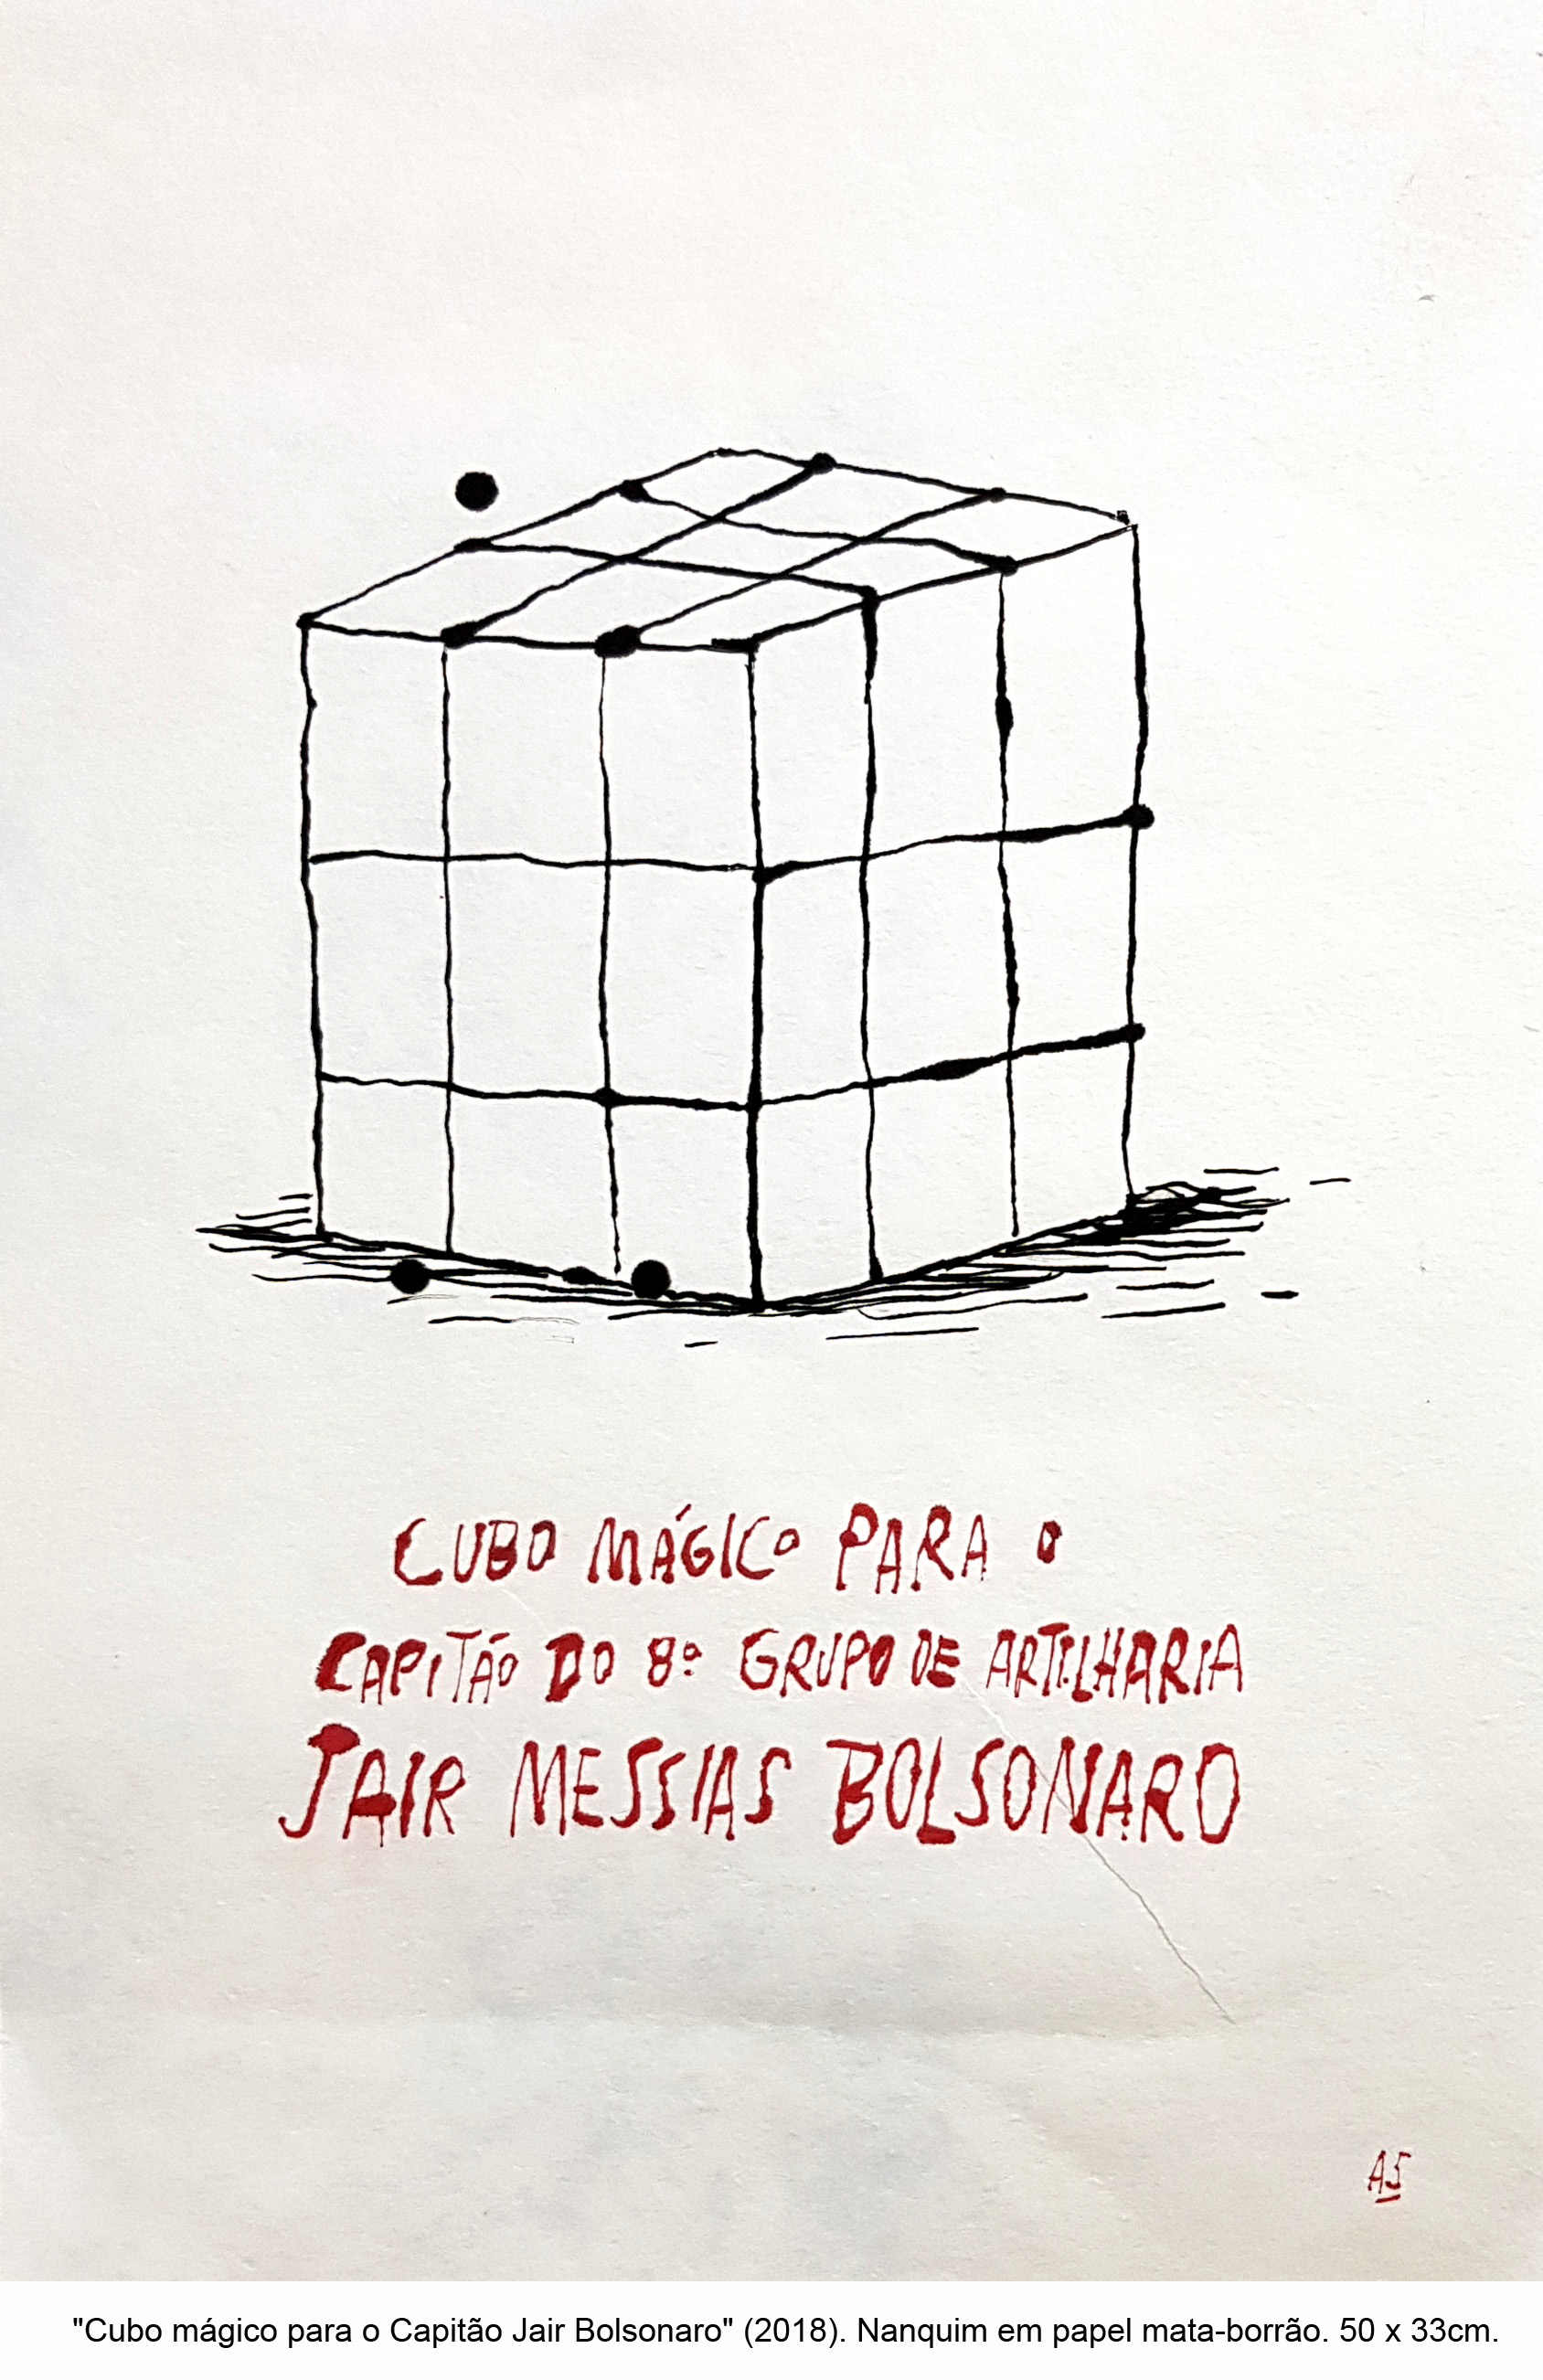 CUBO MÁGICO PARA O
CAPITÃO DO 8º GRUPO DE ARTILHARIA
JAIR MESSIAS BOLSONARO
AS
"Cubo mágico para o Capitão Jair Bolsonaro" (2018). Nanquim em papel mata-borrão. 50 x 33cm.